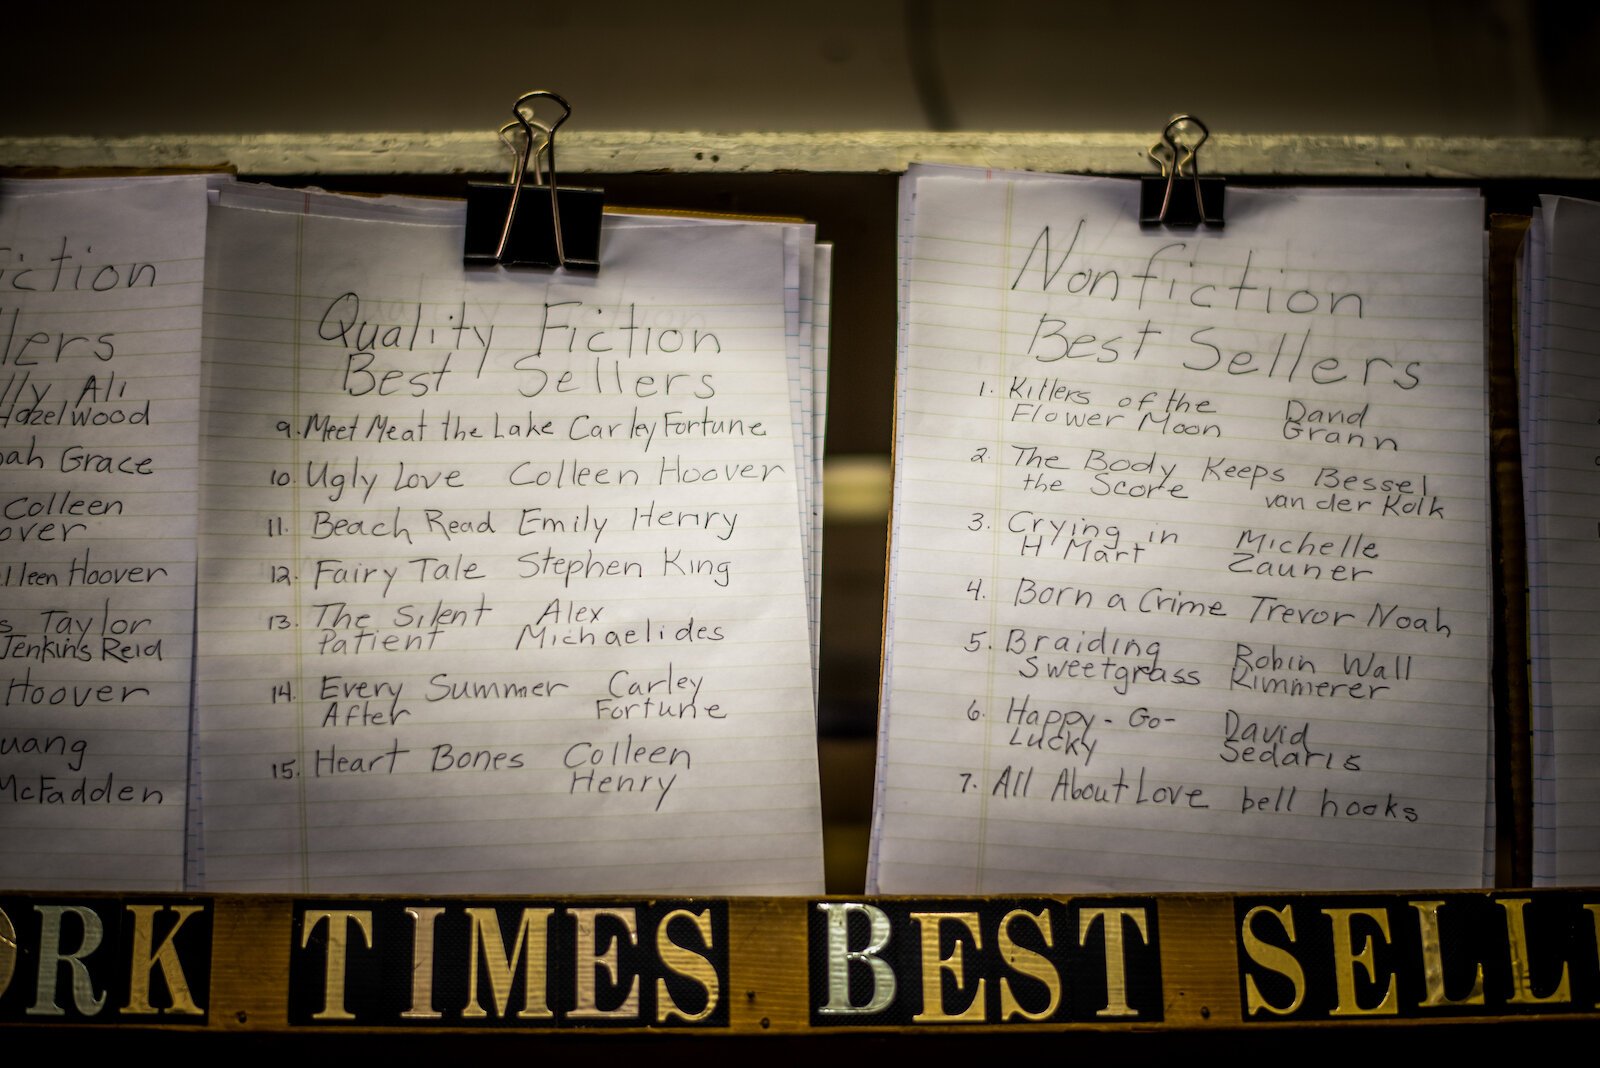 iction
llers
lly Ali
Hazelwood
oah Grace
Colleen
over
lleen Hoover
s Taylor
Jenkins Reid
Hoover
uang
McFadden
Quality Fiction
Best Sellers
9. Meet Meat the Lake Carley Fortune
10. Ugly Love Colleen Hoover
11. Beach Read Emily Henry
12. Fairy Tale Stephen King
13. The Silent Alex
Patient Michaelides
14. Every Summer Carley
After Fortune
15. Heart Bones Colleen
Henry
Nonfiction
Best Sellers
1. Killers of the David
Flower Moon Grann
2. The Body Keeps Bessel
the Score van der Kolk
3. Crying in Michelle
H Mart Zauner
4. Born a Crime Trevor Noah
5. Braiding Robin Wall
Sweetgrass Kimmerer
6. Happy-Go- David
Lucky Sedaris
7. All About Love bell hooks
ORK TIMES BEST SELL